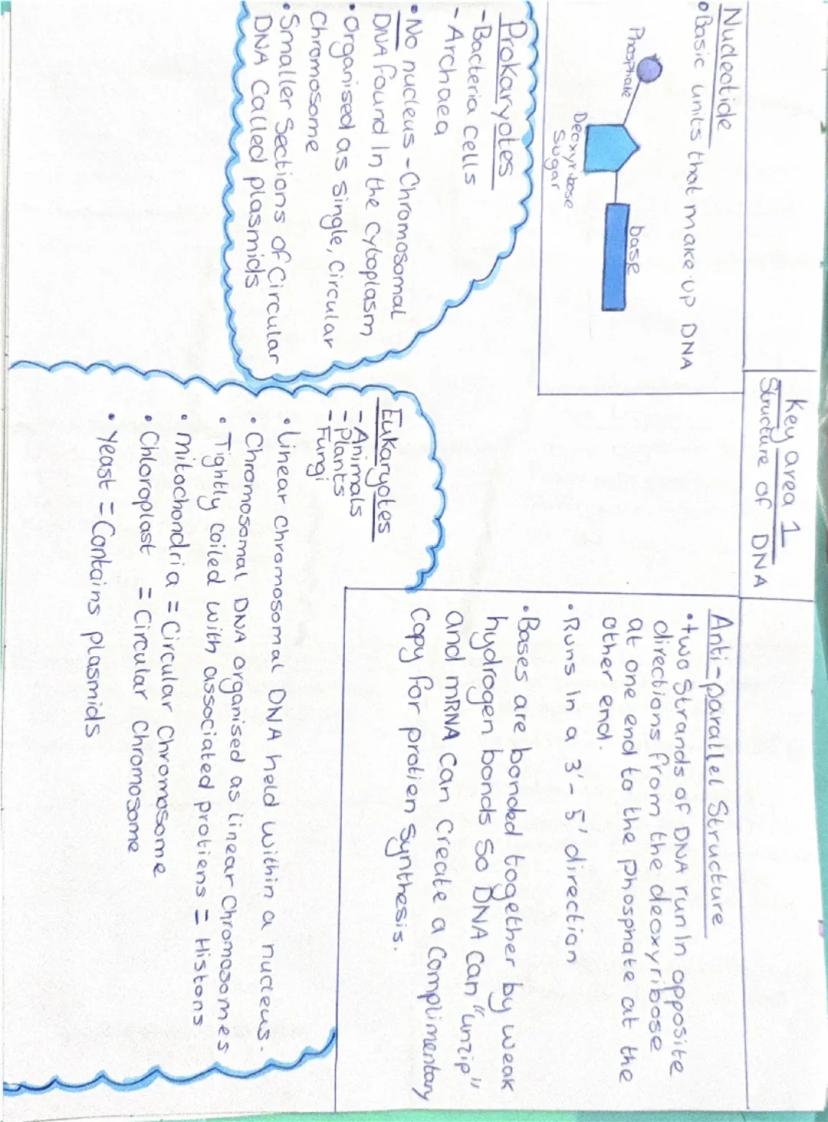 Key area 1
Structure of DNA
Nucleotide
• Basic units that make up DNA
Phosphate
Deoxyribose
Sugar
base
Anti-parallel Structure
• two strands of DNA run in opposite
directions from the deoxyribose
at one end to the phosphate at the
other end.
• Runs in a 3' - 5' direction
• Bases are bonded together by weak
hydrogen bonds so DNA can "unzip"
and mRNA can create a complimentary
copy for protien synthesis.
Prokaryotes
- Bacteria cells
- Archaea
• No nucleus - Chromosomal
DNA found in the cytoplasm
• Organised as single, circular
Chromosome
• Smaller sections of circular
DNA called plasmids
Eukaryotes
- Animals
- Plants
- Fungi
• Linear chromosomal DNA held within a nucleus.
• Chromosomal DNA organised as linear chromosomes
• Tightly coiled with associated protiens = Histons
• Mitochondria = Circular Chromosome
• Chloroplast = Circular Chromosome
• Yeast = Contains plasmids